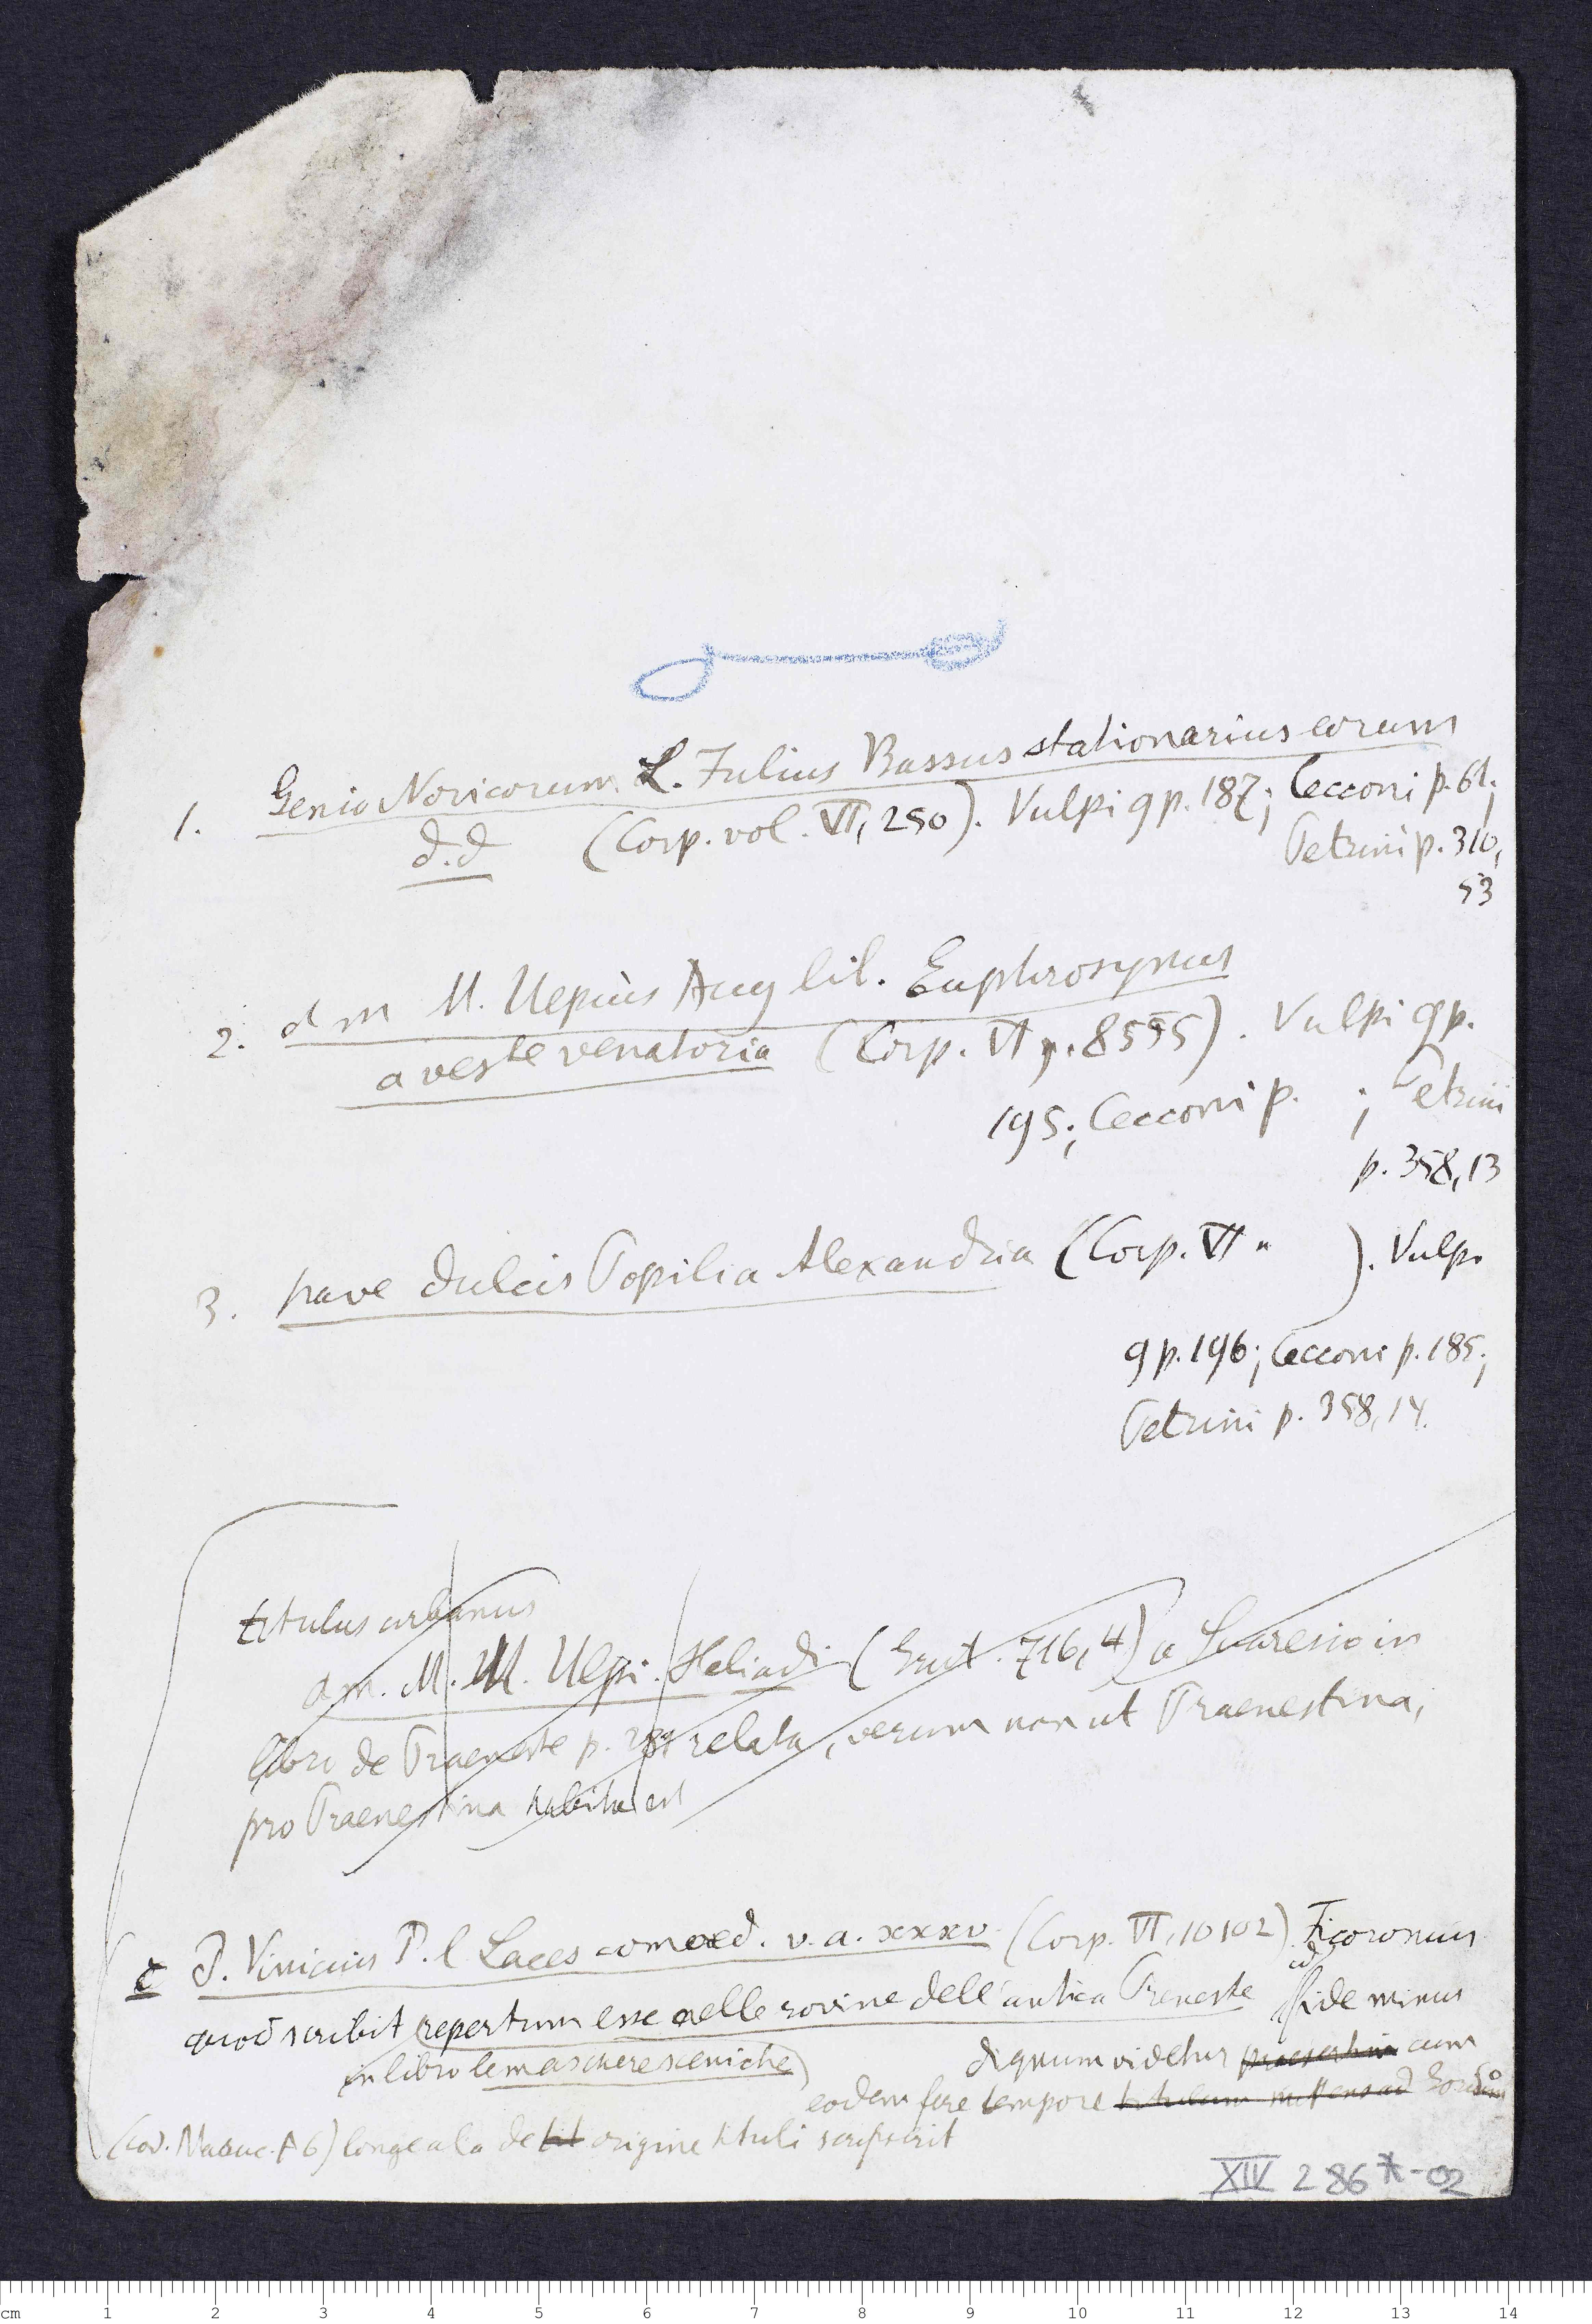 1. Genio Noricorum L. Julius Bassus stationarius eorum
d.d (Corp. vol. VI, 250). Vulpi 9 p. 187; Cecconi p. 61;
Petrini p. 310,
53
2. d m M. Ulpius Aug lib. Euphrosynus
a veste venatoria (Corp. VI n. 8555). Vulpi 9 p.
195; Cecconi p. ; Petrini
p. 358, 13
3. have dulcis Popilia Alexandria (Corp. VI n ). Vulpi
9 p. 196; Cecconi p. 185;
Petrini p. 358, 14.
titulus urbanus
d m. M. M. Ulpi. Heliadi (Grut. 716, 4) a Suaresio in
libro de Praeneste p. relata, verum non ut Praenestina,
pro Praenestina habita est
P. Vinicius P. l Laces comoed. v. a. xxxv (Corp. VI, 10102). Ficoronius
quod scribit repertum esse nelle rovine dell' antica Preneste id fide minus
in libro le maschere sceniche)
dignum videtur praesertim cum
eodem fere tempore
longe alia de tit origine tituli scripserit
XIV 286*-02
cm 1 2 3 4 5 6 7 8 9 10 11 12 13 14